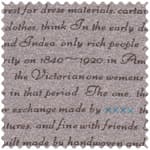 est for dress materials, cartai
clothes, think In the early d
nd Indea, only rich people
rity on 1840~1920 in Am
the Victorian one womens
in that period. The one, t
r exchange made by xxxx th
tures, and fine with friends
uilt made by handwoven and